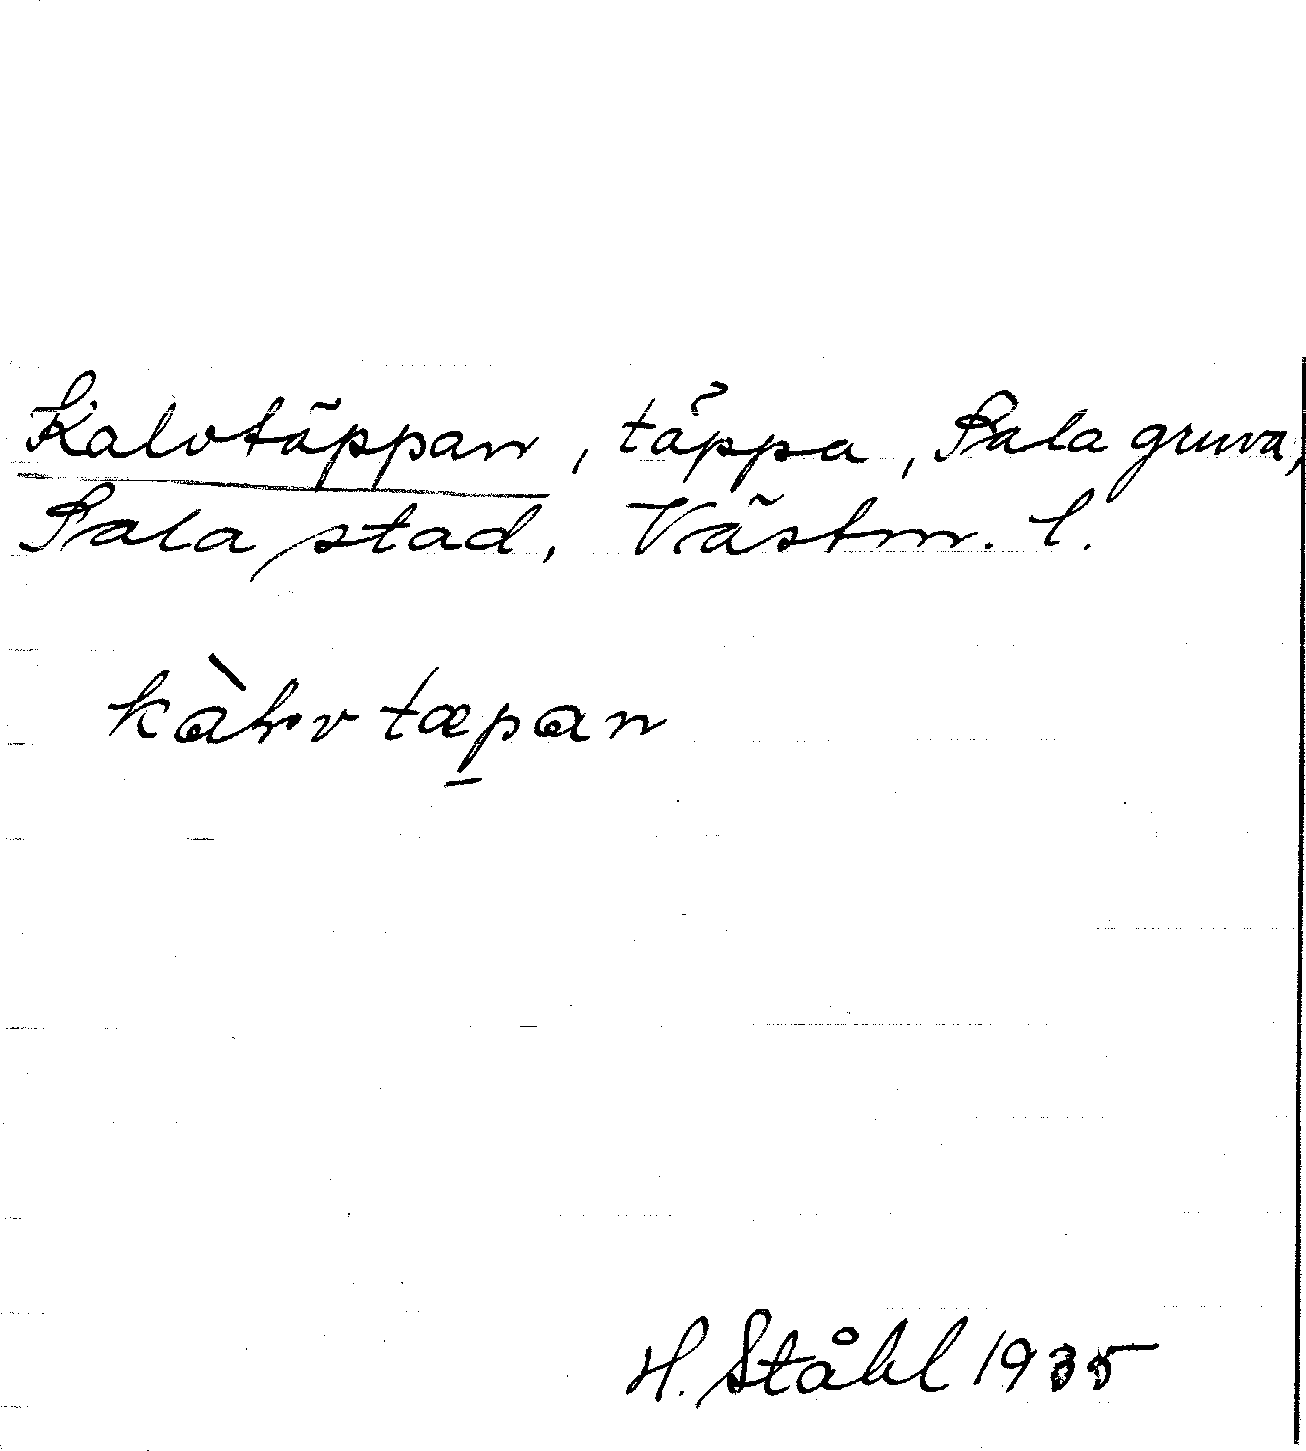 Kalvtäppan, täppa, Sala gruva,
Sala stad, Västm. l.
kàlv tæpan
H. Ståhl 1935